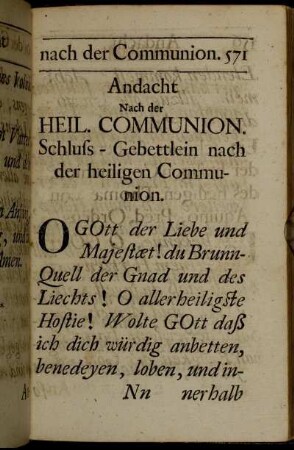 nach der Communion. 571
Andacht
Nach der
HEIL. COMMUNION.
Schluſs - Gebettlein nach
der heiligen Commu-
nion.
O GOtt der Liebe und
Majeſtæt! du Brunn-
Quell der Gnad und des
Liechts! O allerheiligſte
Hoſtie! Wolte GOtt daß
ich dich würdig anbetten,
benedeyen, loben, und in-
Nn nerhalb